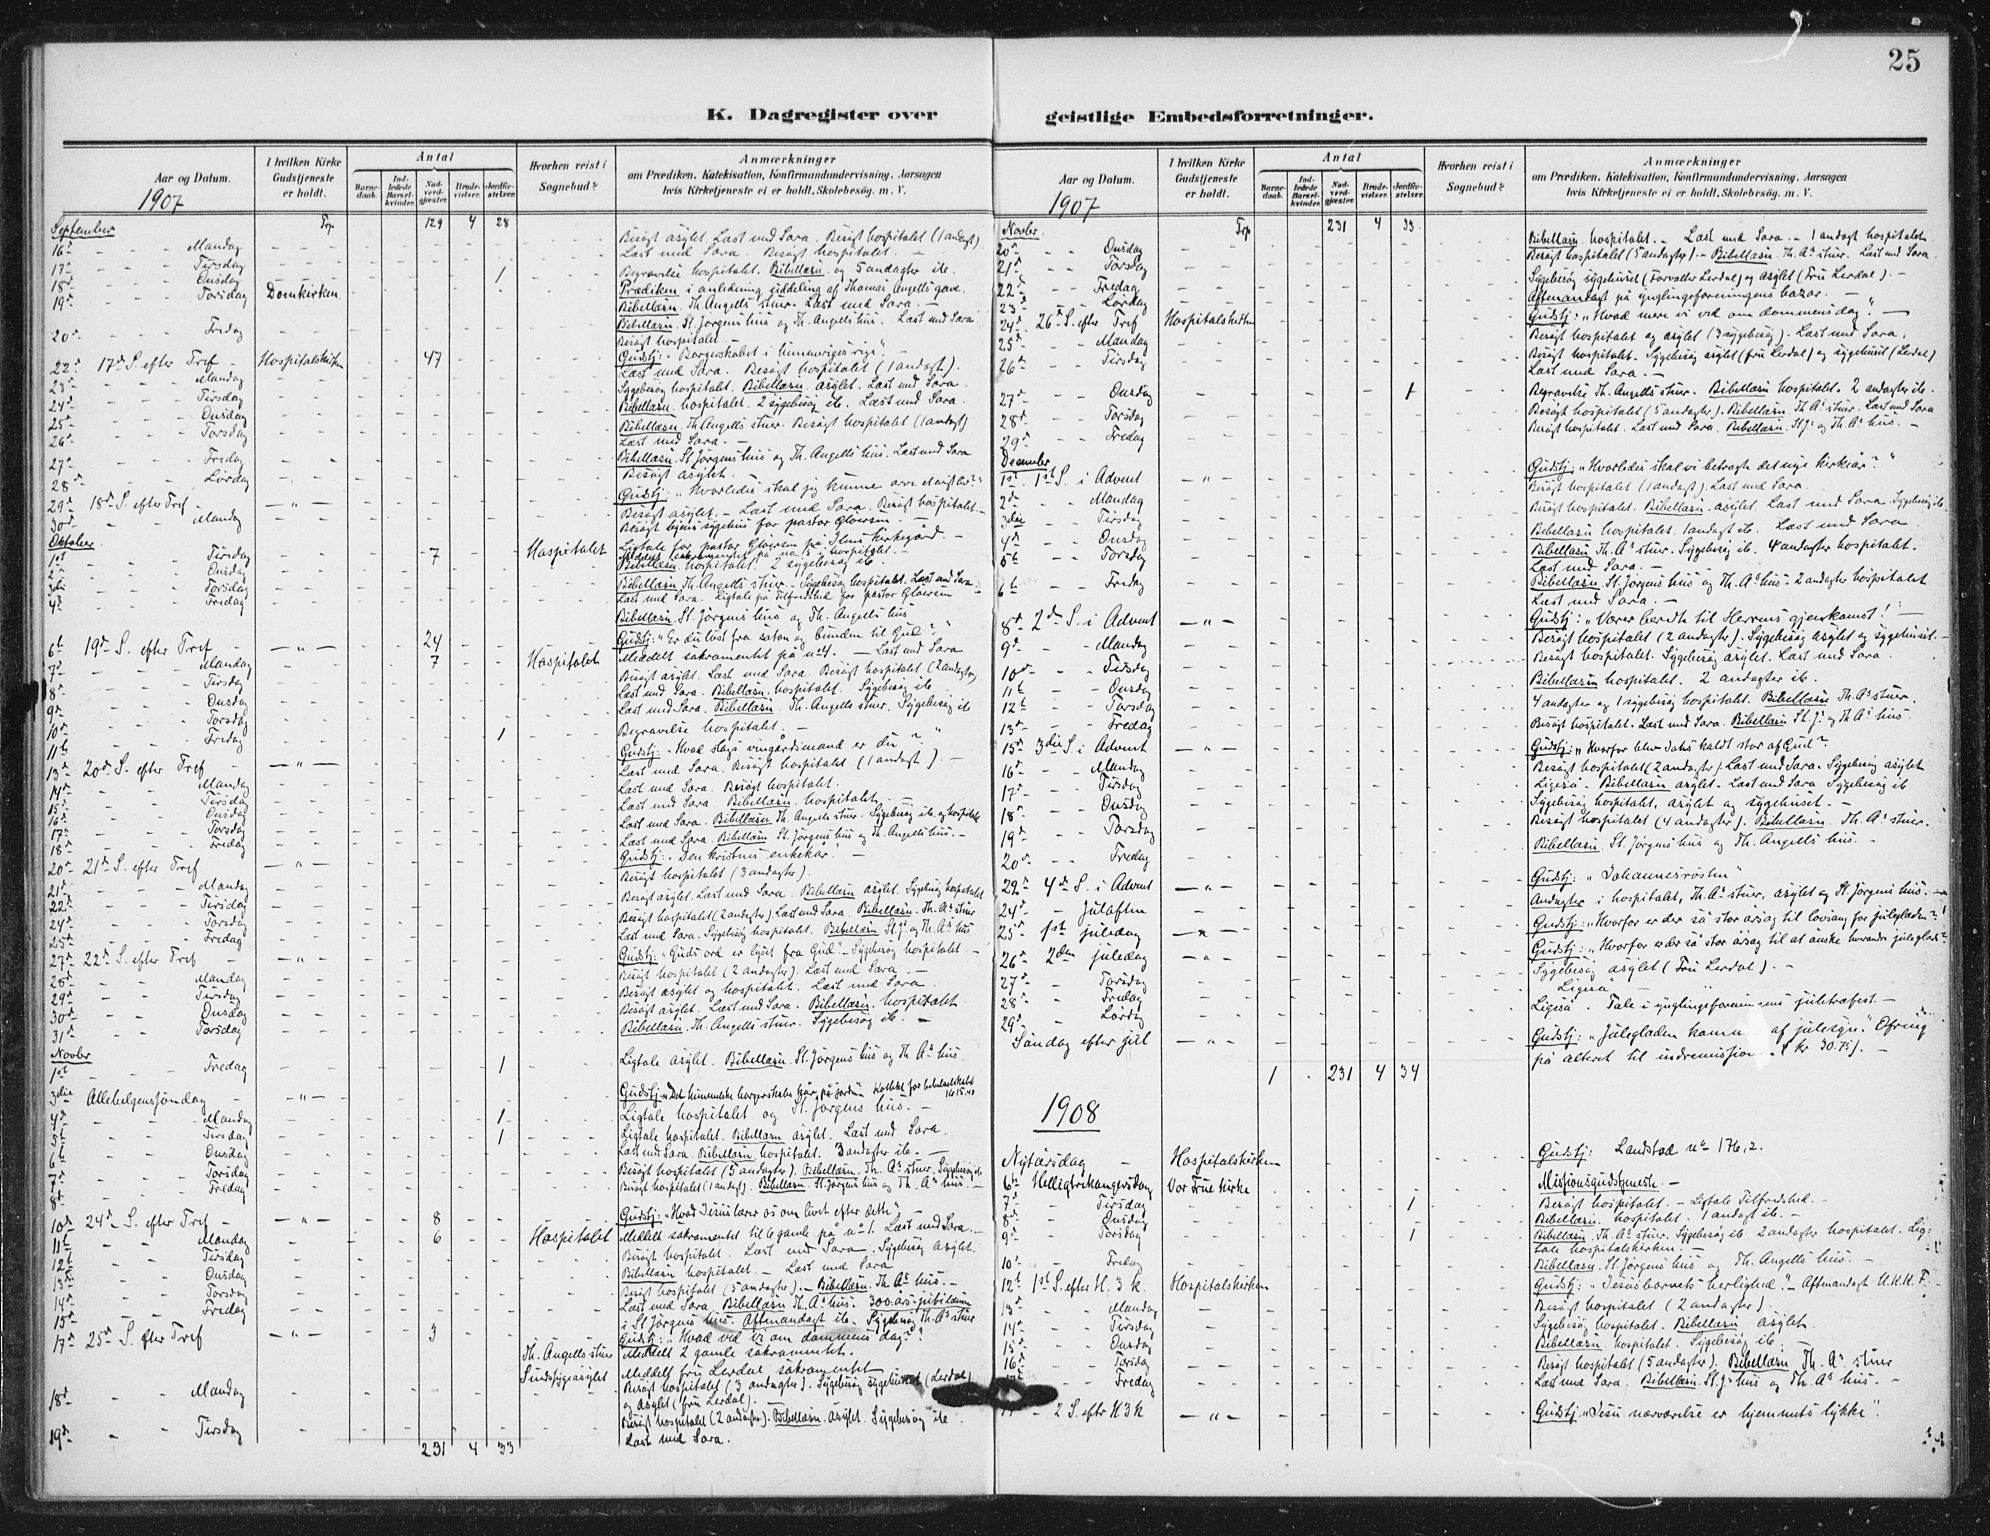 25
K. Dagregister over
geistlige Embedsforretninger.
Aar og Datum.
I hvilken Kirke Gudstjeneste er holdt.
Antal
Barnedaab.
Indledede Barselkvinder.
Nadverdgjæster.
Brudevielser.
Jordfæstelser.
Hvorhen reist i Sognebud?
Anmærkninger
om Prædiken, Katekisation, Konfirmandundervisning. Aarsagen
hvis Kirketjeneste ei er holdt. Skolebesøg. m. V.
1907
September Trp. 129 4 28
16d Mandag Besøgt asylet. Læst med Sara. Besøgt hospitalet (1 andagt)
17d Tirsdag Læst med Sara. Besøgt hospitalet.
18d Onsdag 1 Begravelse hospitalet. Bibellæsn. og 5 andagter ib.
19d Torsdag Domkirken Prædiken i anledning uddeling af Thomas Angells gave.
Bibellæsn. Th. Angells stuer. Læst med Sara.
20d Fredag Bibellæsn. St. Jørgens hus og Th. Angells hus. Læst med Sara
Besøgt hospitalet
22d 17d S. efter Tref Hospitalskirken 47 Gudstj: "Borgerskabet i himmeriges rige"
23d Mandag Læst med Sara. Besøgt hospitalet (1 andagt).
24d Tirsdag Sygebesøg hospitalet. Bibellæsn. asylet. Læst med Sara.
25d Onsdag Bibellæsn. hospitalet. 2 sygebesøg ib. Læst med Sara.
26d Torsdag Bibellæsn. Th Angells stuer. Besøgt hospitalet (1 andagt)
Læst med Sara.
27d Fredag Bibellæsn. St Jørgens hus og Th. Angells hus. Læst med Sara
28d Lørdag Besøgt asylet.
29d 18d S. efter Tref - " - Gudstj: "Hvorledes skal jeg kunne
30d Mandag Besøgt asylet. Læst med Sara. Besøgt hospitalet.
Besøgt hjem sygehus for pastor Gløersen
Oktober
1st Tirsdag 7 Hospitalet Ligtale for pastor Gløersen på Ilens kirkegård.
Meddelt sakramentet på no 5 i hospitalet.
2d Onsdag Bibellæsn. hospitalet. 2 sygebesøg ib.
3die Torsdag Bibellæsn. Th. Angells stuer. Sygebesøg hospitalet. Læst med Sara
4d Fredag Læst med Sara. Ligtale på Tilfredshed for pastor Gløersen
Bibellæsn. St. Jørgens hus og Th. Angells hus
6te 19d S. efter Tref - " - 24 Gudstj: "Er du løst fra satan og bunden til Gud?"
7d Mandag 7 Hospitalet Meddelt sakramentet på no 4. Læst med Sara
8d Tirsdag Besøgt asylet. Læst med Sara. Besøgt hospitalet. (2 andagter)
9d Onsdag Læst med Sara. Bibellæsn. hospitalet. Sygebesøg ib
10d Torsdag Læst med Sara. Bibellæsn. Th. Angells stuer. Sygebesøg ib
11te Fredag 1 Begravelse hospitalet.
13d 20d S. efter Tref - " - Gudstj: "Hvad slags vingårdsmand er du?"
14d Mandag Læst med Sara. Besøgt hospitalet (1 andagt).
15d Tirsdag Læst med Sara. Besøgt hospitalet.
16d Onsdag Læst med Sara. Bibellæsn. hospitalet.
17d Torsdag Læst med Sara. Bibellæsn. Th. Angells stuer. Sygebesøg ib. og hospitalet
18d Fredag Læst med Sara. Bibellæsn. St. Jørgens hus og Th. Angells hus.
20d 21d S. efter Tref - " - Gudstj: "Den kristnes
21d Mandag Besøgt hospitalet (3 andagter).
22d Tirsdag Besøgt asylet. Læst med Sara. Bibellæsn. asylet. Sygebesøg hospitalet
24d Torsdag Besøgt hospitalet (2 andagter) Læst med Sara. Bibellæsn. Th. A's stuer
25d Fredag Læst med Sara. Sygebesøg hospitalet. Bibellæsn. St J's og Th. A's hus
27d 22d S. efter Tref - " - Gudstj: "Guds ord er lyset fra Gud". Sygebesøg hospitalet.
28d Mandag Besøgt hospitalet (2 andagter). Læst med Sara
29d Tirsdag Besøgt asylet og hospitalet. Læst med Sara
30d Onsdag Besøgt asylet. Læst med Sara. Bibellæsn. hospitalet
31d Torsdag Bibellæsn. Th. Angells stuer. Sygebesøg ib.
Novbr
1st Fredag 1 Ligtale asylet. Bibellæsn. St. Jørgens hus og Th. A's hus.
3die Allehelgensøndag - " - Gudstj. "Det himmelske borgerskabs kår på jorden"
4d Mandag 1 Ligtale hospitalet og St. Jørgens hus.
5te Tirsdag 1 Ligtale hospitalet. Bibellæsn. asylet. Læst med Sara.
6te Onsdag Læst med Sara. Bibellæsn. hospitalet. 3 andagter ib.
7d Torsdag Besøgt hospitalet (5 andagter). Bibellæsn. Th. A's stuer. Sygebesøg ib
8d Fredag Besøgt hospitalet (1 andagt). Bibellæsn. St. Jørgens hus og Th. A's hus.
10d 24d S. efter Tref - " - 8 Gudstj: "Hvad Jesus lærer os om livet efter dette".
11te Mandag 6 Hospitalet Meddelt sakramentet til 6 gamle på no 1. Læst med Sara.
12te Tirsdag Besøgt hospitalet. Læst med Sara. Sygebesøg asylet.
13d Onsdag Bibellæsn hospitalet. Læst med Sara
14d Torsdag Besøgt hospitalet (5 andagter). Bibellæsn. Th. A's hus.
15d Fredag Læst med Sara. Bibellæsn Th. A's hus. 300-års-jubilæum
i St Jørgens hus. Aftenandagt ib. Sygebesøg Th. A's stuer
17d 25d S. efter Tref - " - 3 Gudstj: "Hvad ved vi om dommens dag?"
Th. Angells stuer Meddelt 2 gamle sakramentet.
Sindssygeasylet Meddelt fru Lerdal sakramentet
18d Mandag Besøgt hospitalet (3 andagter). Sygebesøg sygehuset (Lerdal)
og asylet (fru Lerdal).
19d Tirsdag Besøgt hospitalet (2 andagter). Bibellæsn. asylet. Sygebesøg ib.
Læst med Sara.
231 4 33
Aar og Datum.
I hvilken Kirke Gudstjeneste er holdt.
Antal
Barnedaab.
Indledede Barselkvinder.
Nadverdgjæster.
Brudevielser.
Jordfæstelser.
Hvorhen reist i Sognebud?
Anmærkninger
om Prædiken, Katekisation, Konfirmandundervisning. Aarsagen
hvis Kirketjeneste ei er holdt. Skolebesøg. m. V.
1907
Novbr. Trp 231 4 33
20d Onsdag Bibellæsn. hospitalet. Læst med Sara. 1 andagt hospitalet
21d Torsdag Besøgt hospitalet (5 andagter). Bibellæsn. Th. A's stuer. Læst med Sara
22d Fredag Sygebesøg sygehuset (Forvalter Lerdal) og asylet (Fru Lerdal).
23d Lørdag Aftenandagt på ynglingeforeningens bazar.
24d 26d S. efter Tref Hospitalskirken Gudstj: "Hvad mere vi ved om dommensdag"
25d Mandag Besøgt hospitalet og asylet (3 sygebesøg). Læst med Sara.
26d Tirsdag Besøgt hospitalet. Sygebesøg asylet (fru Lerdal) og sygehuset (Lerdal)
Læst med Sara.
27d Onsdag 1 Begravelse Th. Angells stuer. Bibellæsn hospitalet. 2 andagter ib.
28d Torsdag Besøgt hospitalet (5 andagter). Bibellæsn. Th. A's stuer. Læst med Sara
29d Fredag Besøgt hospitalet. Læst med Sara. Bibellæsn. St J's og Th. A's hus.
December
1st 1st S. i Advent - " - Gudstj: "Hvorledes skal vi betragte det nye kirkeår?"
2d Mandag Besøgt hospitalet (1 andagt). Læst med Sara.
3die Tirsdag Besøgt hospitalet. Bibellæsn. asylet. Læst med Sara. Sygebesøg ib.
4d Onsdag Bibellæsn hospitalet. 1 andagt ib. Læst med Sara
5te Torsdag Bibellæsn Th. A's stuer. Sygebesøg ib. 4 andagter hospitalet.
Læst med Sara.
6te Fredag Bibellæsn St. Jørgens hus og Th. A's hus. 2 andagter hospitalet
Læst med Sara.
8d 2den S. i Advent - " - Gudstj: "Værer beredt til Herrens gjenkomst!"
9d Mandag Besøgt hospitalet (2 andagter). Sygebesøg asylet og sygehuset.
10d Tirsdag Besøgt hospitalet. Sygebesøg asylet. Læst med Sara.
11te Onsdag Bibellæsn hospitalet. 2 andagter ib.
12te Torsdag 4 andagter og 1 sygebesøg hospitalet. Bibellæsn Th. A's stuer.
13d Fredag Besøgt hospitalet. Læst med Sara. Bibellæsn St. J's og Th A's hus.
15d 3die S. i Advent - " - Gudstj: "Hvorfor blev Johs kaldt stor af Gud".
16d Mandag Besøgt hospitalet (2 andagter) Læst med Sara. Sygebesøg asylet
17d Tirsdag Ligeså. Bibellæsn asylet. Læst med Sara. Sygebesøg ib
18d Onsdag Sygebesøg hospitalet, asylet og sygehuset.
19d Torsdag Besøgt hospitalet (4 andagter). Bibellæsn. Th. A's stuer.
20d Fredag Bibellæsn. St. Jørgens hus og Th. Angells hus.
22d 4d S. i Advent - " - Gudstj: "Johannesrøsten"
24d Julaften Andagter i hospitalet, Th. A's stuer, asylet og St. Jørgens hus.
25d 1st juledag - " - Gudstj: "Hvorfor er der så stor årsag til lovsang for juleglæden?"
26d 2den juledag - " - Gudstj: "Hvorfor er der så stor årsag til at ønske hverandre juleglæde?"
27d Torsdag Sygebesøg asylet (Fru Lerdal).
28d Fredag Ligeså
29d Lørdag Ligeså. Tale i ynglingeforeningens juletræfest.
Søndag efter jul - " - Gudstj: "Juleglæden kom af julesyn". Ofring
på alteret til indremission (kr 30.75).
1 231 4 34
1908
Nytårsdag Hospitalskirken Gudstj: Landstad no 176,2.
6te Helligtrekongersdag Vor Frue Kirke Missionsgudstjeneste.
7d Tirsdag 1 Besøgt hospitalet. Ligtale Tilfredshed.
8d Onsdag Bibellæsn. hospitalet. 1 andagt ib.
9d Torsdag 1 Bibellæsn. Th. A's stuer. Sygebesøg ib. 2 andagter hospitalet. Lig-
tale hospitalskirken.
10d Fredag Bibellæsn. St. Jørgens hus og Th. Angells hus.
12te 1st S. efter H. 3 k. Hospitalskirken Gudstj: "Jesusbarnets herlighed". Aftenandagt U.K.K.F.
13d Mandag Besøgt hospitalet (2 andagter)
14d Tirsdag Sygebesøg hospitalet. Bibellæsn asylet.
15d Onsdag Bibellæsn. hospitalet. Sygebesøg ib.
16d Torsdag Besøgt hospitalet (5 andagter). Bibellæsn Th. A's stuer
Fredag Læst med Sara. Bibellæsn. St. J's hus og Th. A's hus.
2 S. efter H3k - " - Gudstj. "Jesu nærværelse er hjemmets lykke".